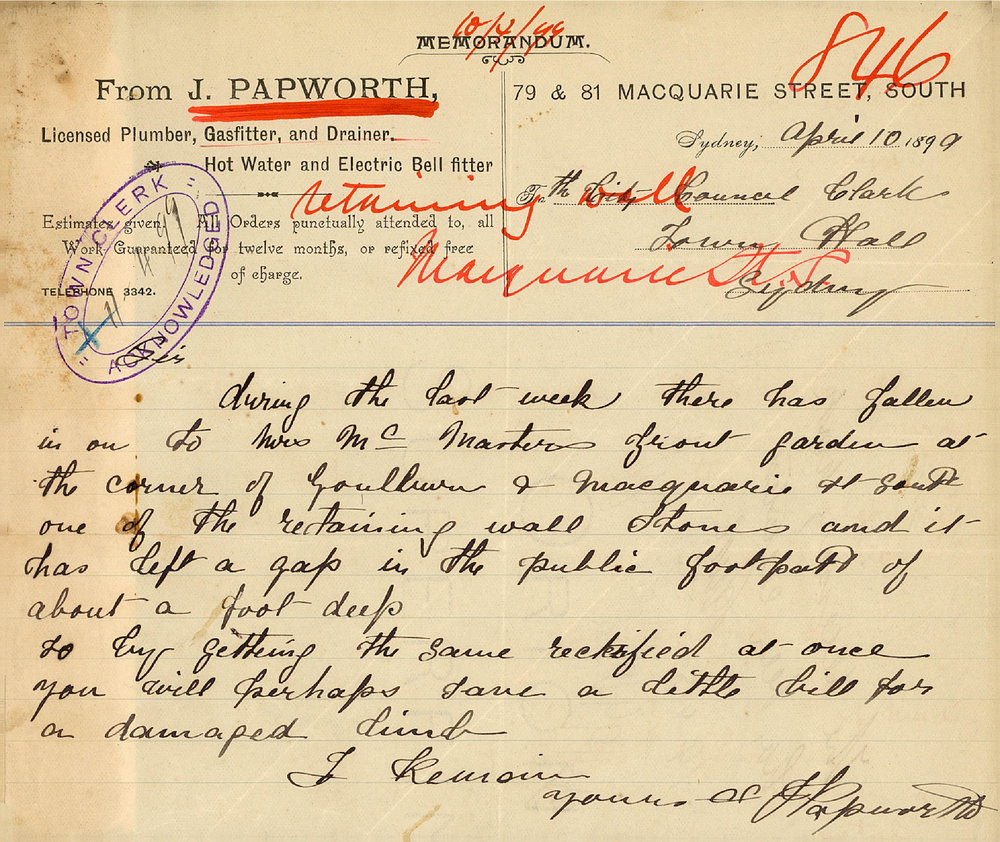 10/4/99
MEMORANDUM.
846
From J. PAPWORTH,
79 & 81 MACQUARIE STREET, SOUTH
Licensed Plumber, Gasfitter, and Drainer.
Hot Water and Electric Bell fitter
Sydney, April 10 1899
To th City Council Clark
Town Hall
Sydney
retaining wall
Macquarie St. S.
Estimates given All Orders punctually attended to, all
Work Guaranteed for twelve months, or refixed free
of charge.
TELEPHONE 3342.
"TOWN CLERK"
ACKNOWLEDGED
Sir
during the last week there has fallen
in on to Mrs Mc Masters front garden at
the corner of Goulburn & Macquarie St South
one of the retaining wall Stones and it
has left a gap in the public footpath of
about a foot deep
so by getting the same reckified at once
you will perhaps save a little bill for
a damaged limb
I Remain
yours &c J Papworth